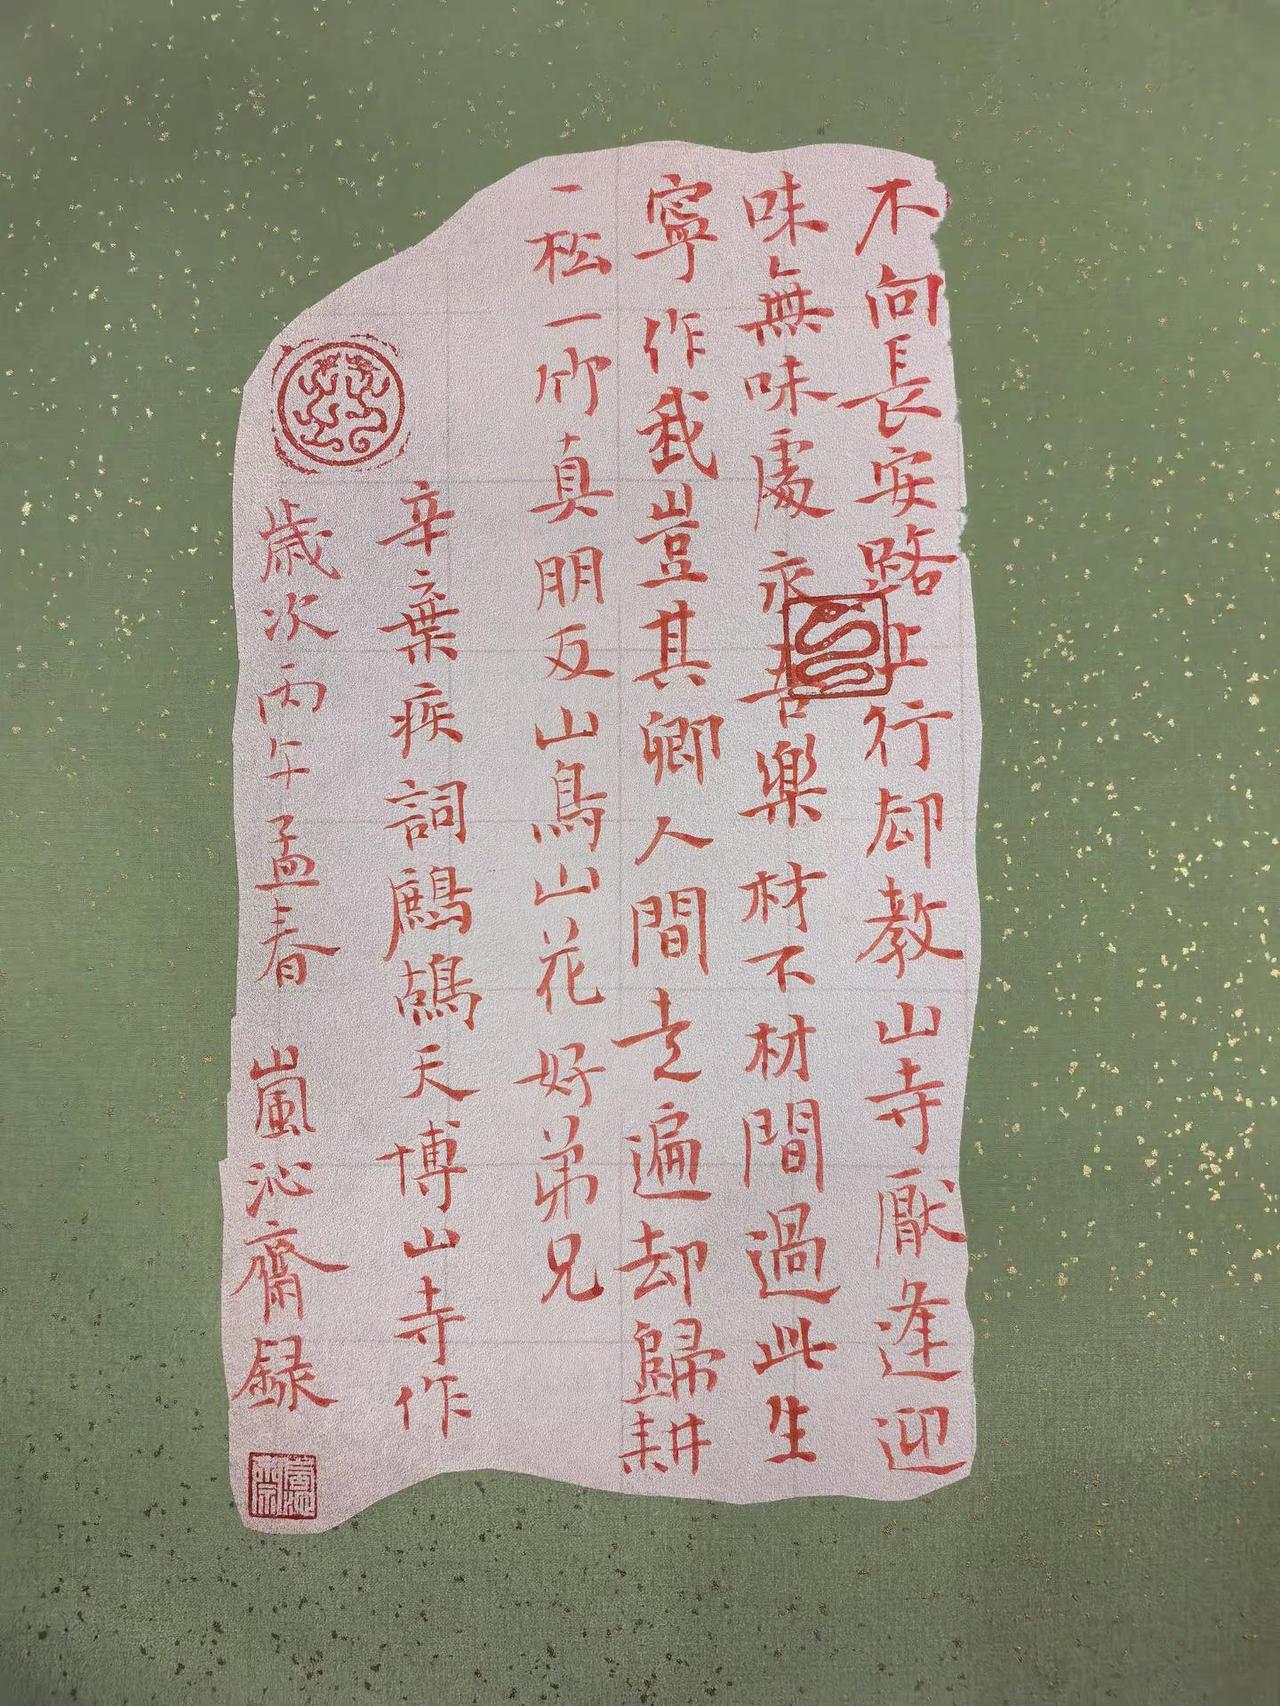 不向長安路上行却教山寺厭逢迎
味無味處求吾樂材不材間過此生
寧作我豈其卿人間走遍却歸耕
一松一竹真朋友山鳥山花好弟兄
辛棄疾詞鷓鴣天博山寺作
歲次丙午孟春 嵐沁齋録